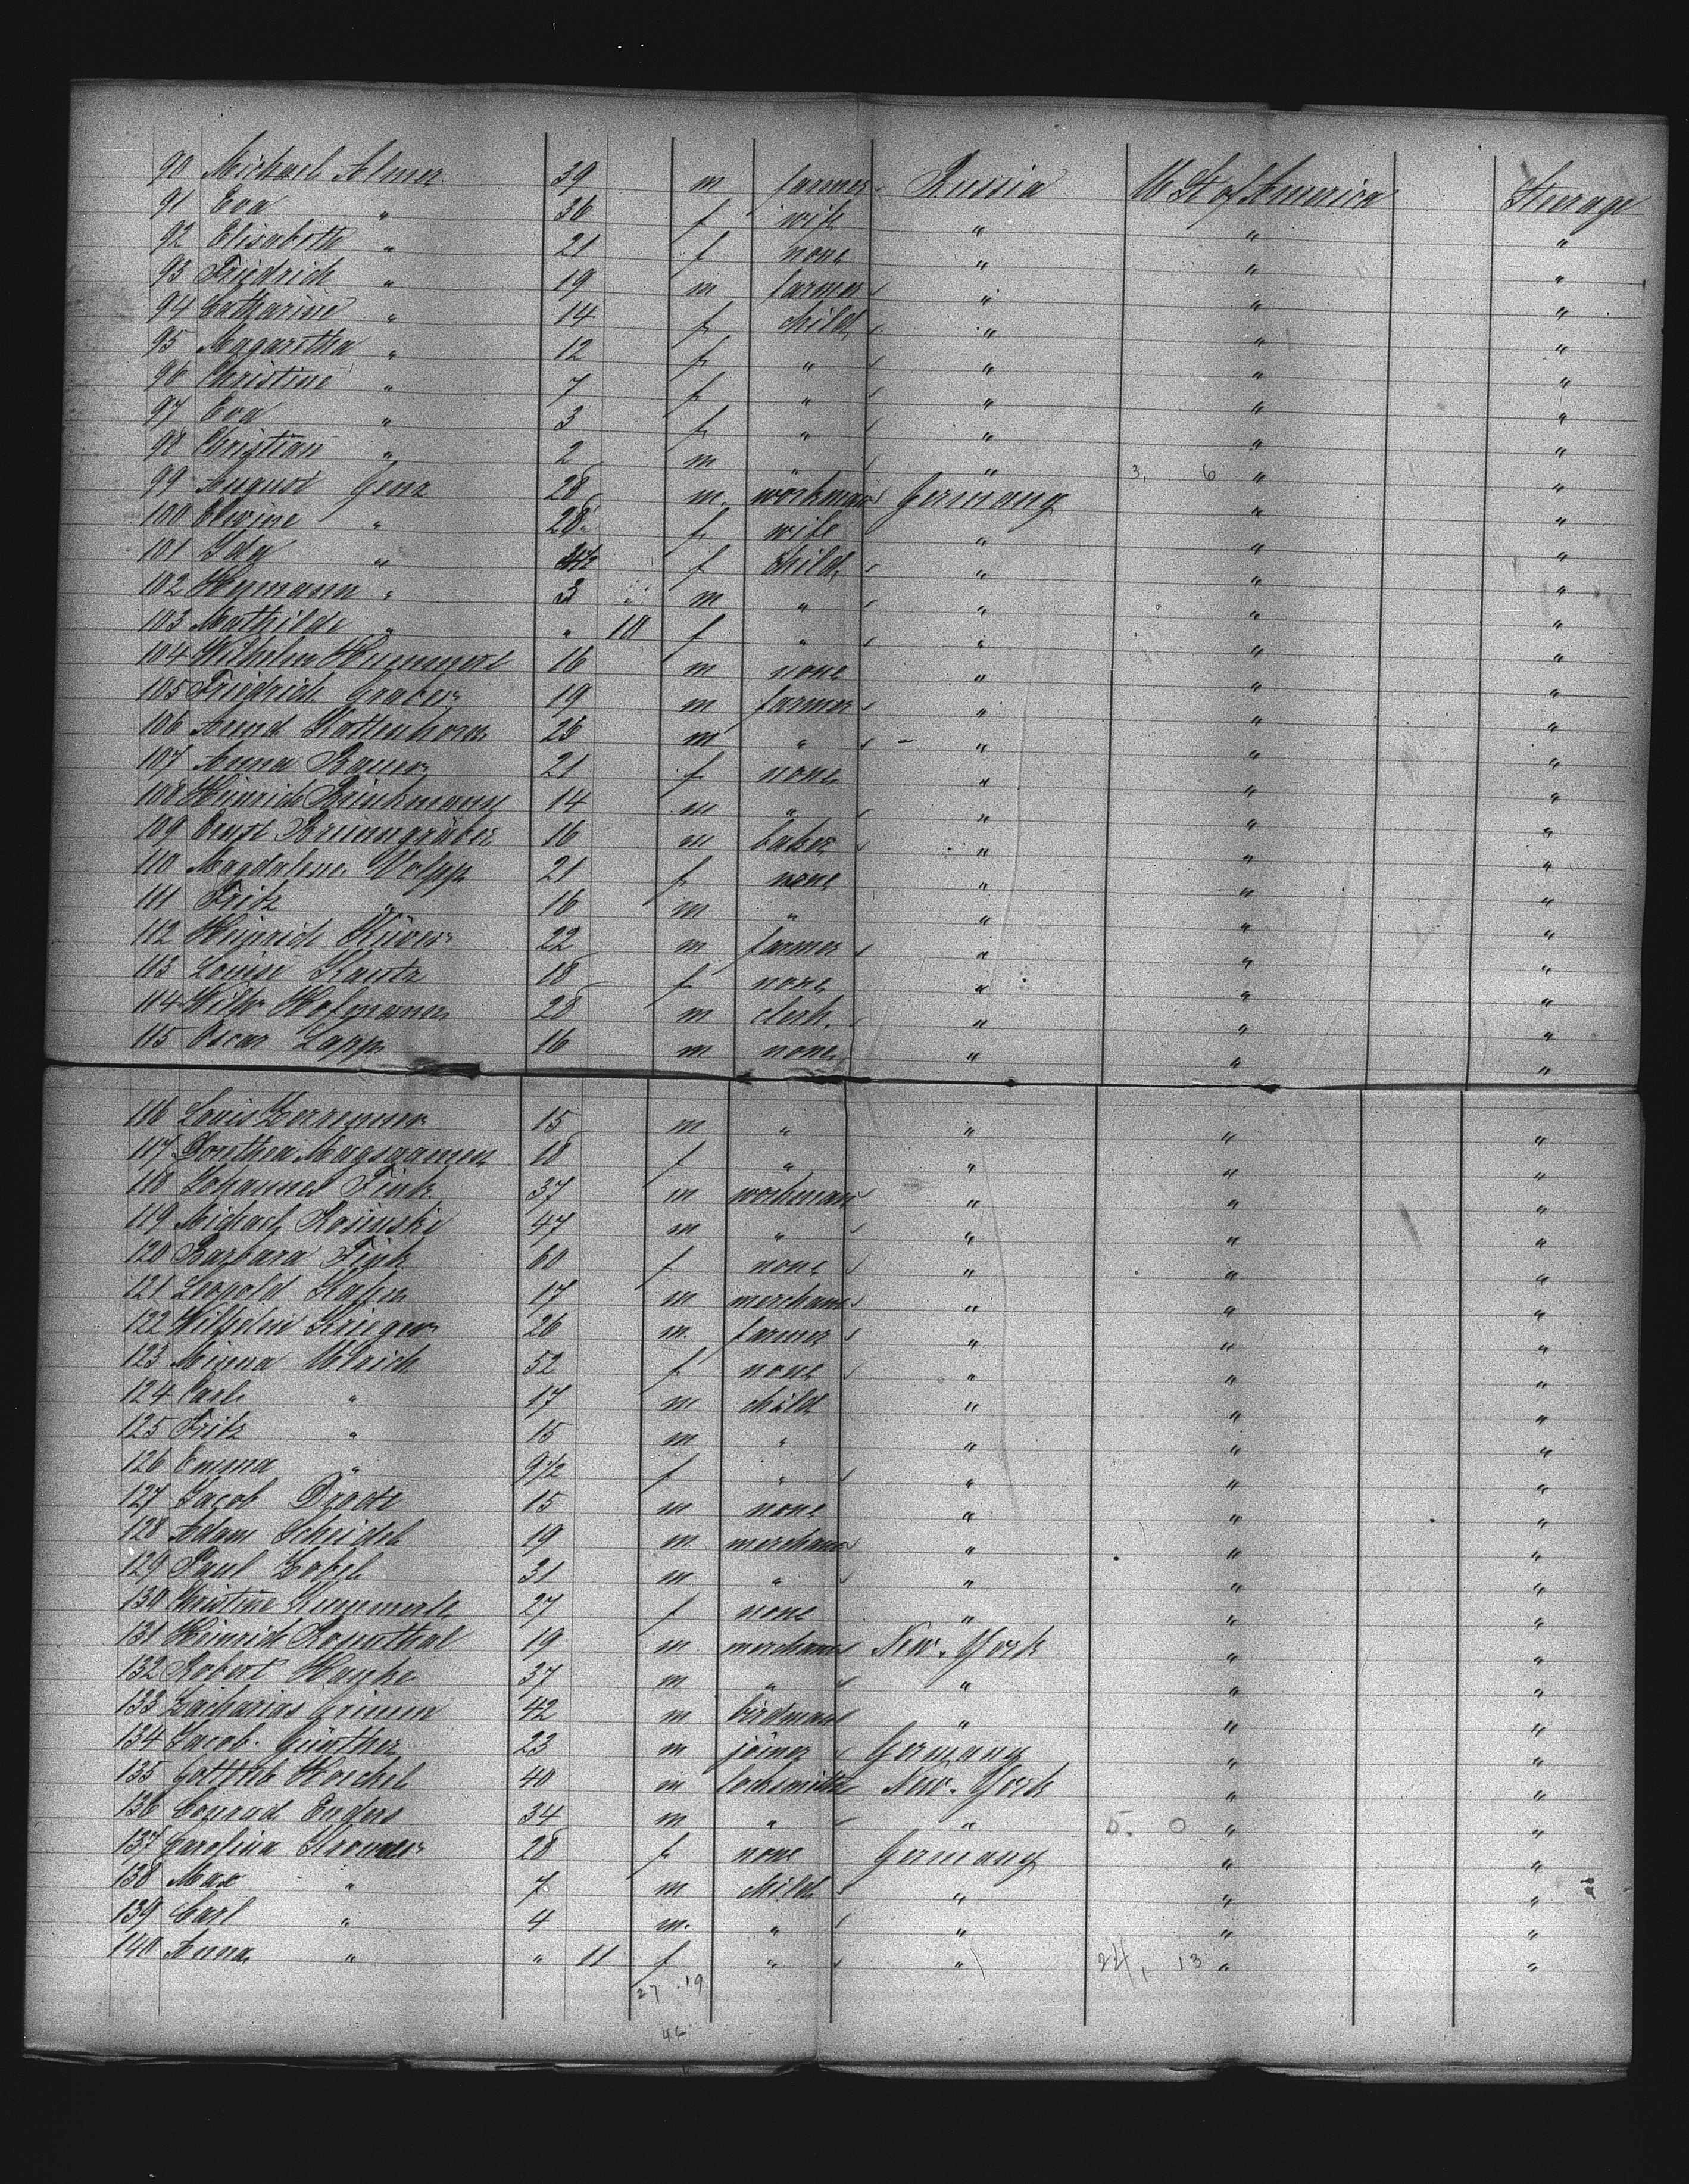 90 Michael Almer 39 m farmer Russia U St of America Sterage
91 Eva " 36 f wife " " "
92 Elisabeth " 21 f none " " "
93 Friedrich " 19 m farmer " " "
94 Catharine " 14 f child " " "
95 Magaretha " 12 f " " " "
96 Christine " 7 f " " " "
97 Eva " 3 f " " " "
98 Christian " 2 m " " 3, 6 " "
99 August Genz 28 m. workman Germany " "
100 Elwine " 28 f wife " " "
101 Ida " f child " " "
102 Hermann " 3 m " " " "
103 Mathilde " " 10 f " " " "
104 Wilhelm 16 m none " " "
105 Friedrich Graber 19 m farmer " " "
106 Arend Kattenhorn 26 m " " " "
107 Anna Bauer 21 f none " " "
108 Heinrich Brinkmann 14 m " " " "
109 Ernst Brünngräber 16 m baker " " "
110 Magdalene Volpp 21 f none " " "
111 Fritz " 16 m " " " "
112 Heinrich Küver 22 m farmer " " "
113 Louise Kautz 18 f none " " "
114 Wilh. Hofmann 28 m clerk. " " "
115 Oscar Lapp 16 m none " " "
116 Louis Zerrenner 15 m " " " "
117 Dorothea 18 f " " " "
118 Johannes Fink 37 m workman " " "
119 Michael Kosinski 47 m " " " "
120 Barbara Fink 60 f none " " "
121 Leopold 17 m merchant " " "
122 Wilhelm Krieger 26 m. farmer " " "
123 Minna Ulrich 52 f none " " "
124 Carl " 17 m child " " "
125 Fritz " 15 m " " " "
126 Emma " 9 1/2 f " " " "
127 Jacob 15 m none " " "
128 Adam Scheidel 19 m merchant " " "
129 Paul Zobel 31 m " " " "
130 Christine Kümmerle 27 f none " " "
131 Heinrich Rosenthal 19 m merchant New-York " "
132 Robert 37 m " " " "
133 Zacharias Grimm 42 m birdman " " "
134 Jacob Günther 23 m joiner Germany " "
135 Gottlieb Henkel 40 m locksmith New-York " "
136 Conrad Enders 34 m " " 5. 0 " "
137 Carolina 28 f none Germany " "
138 Max " 7 m child " " "
139 Carl " 4 m. " " " "
140 Anna " " 11 f " " 24, 13 " "
27 19
46